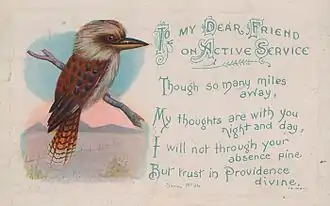 To my Dear Friend
on Active Service
Though so many miles
away,
My thoughts are with you
night and day,
I will not through your
absence pine
But trust in Providence
divine.